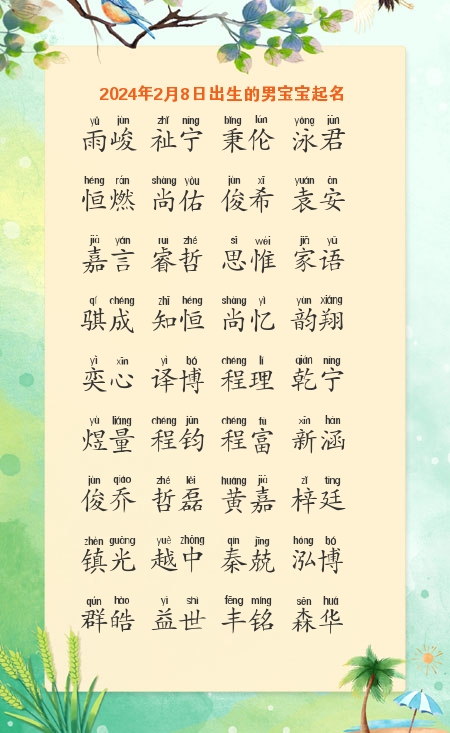 2024年2月8日出生的男宝宝起名
yǔ jùn zhǐ níng bǐng lún yǒng jūn
雨峻 祉宁 秉伦 泳君
héng rán shàng yòu jùn xī yuán ān
恒燃 尚佑 俊希 袁安
jiā yán ruì zhé sī wéi jiā yǔ
嘉言 睿哲 思惟 家语
qí chéng zhī héng shàng yì yùn xiáng
骐成 知恒 尚忆 韵翔
yì xīn yì bó chéng lǐ qián níng
奕心 译博 程理 乾宁
yù liàng chéng jūn chéng fù xīn hán
煜量 程钧 程富 新涵
jùn qiáo zhé lěi huáng jiā zǐ tíng
俊乔 哲磊 黄嘉 梓廷
zhèn guāng yuè zhōng qín jīng hóng bó
镇光 越中 秦兢 泓博
qún hào yì shì fēng míng sēn huá
群皓 益世 丰铭 森华